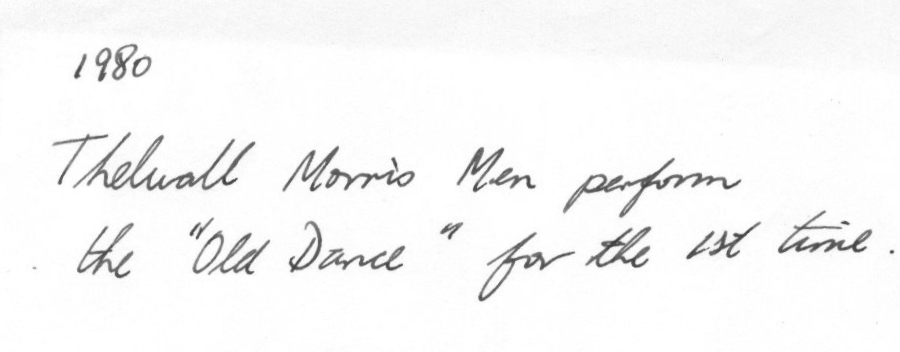 1980
Thelwall Morris Men perform
the "Old Dance" for the 1st time.